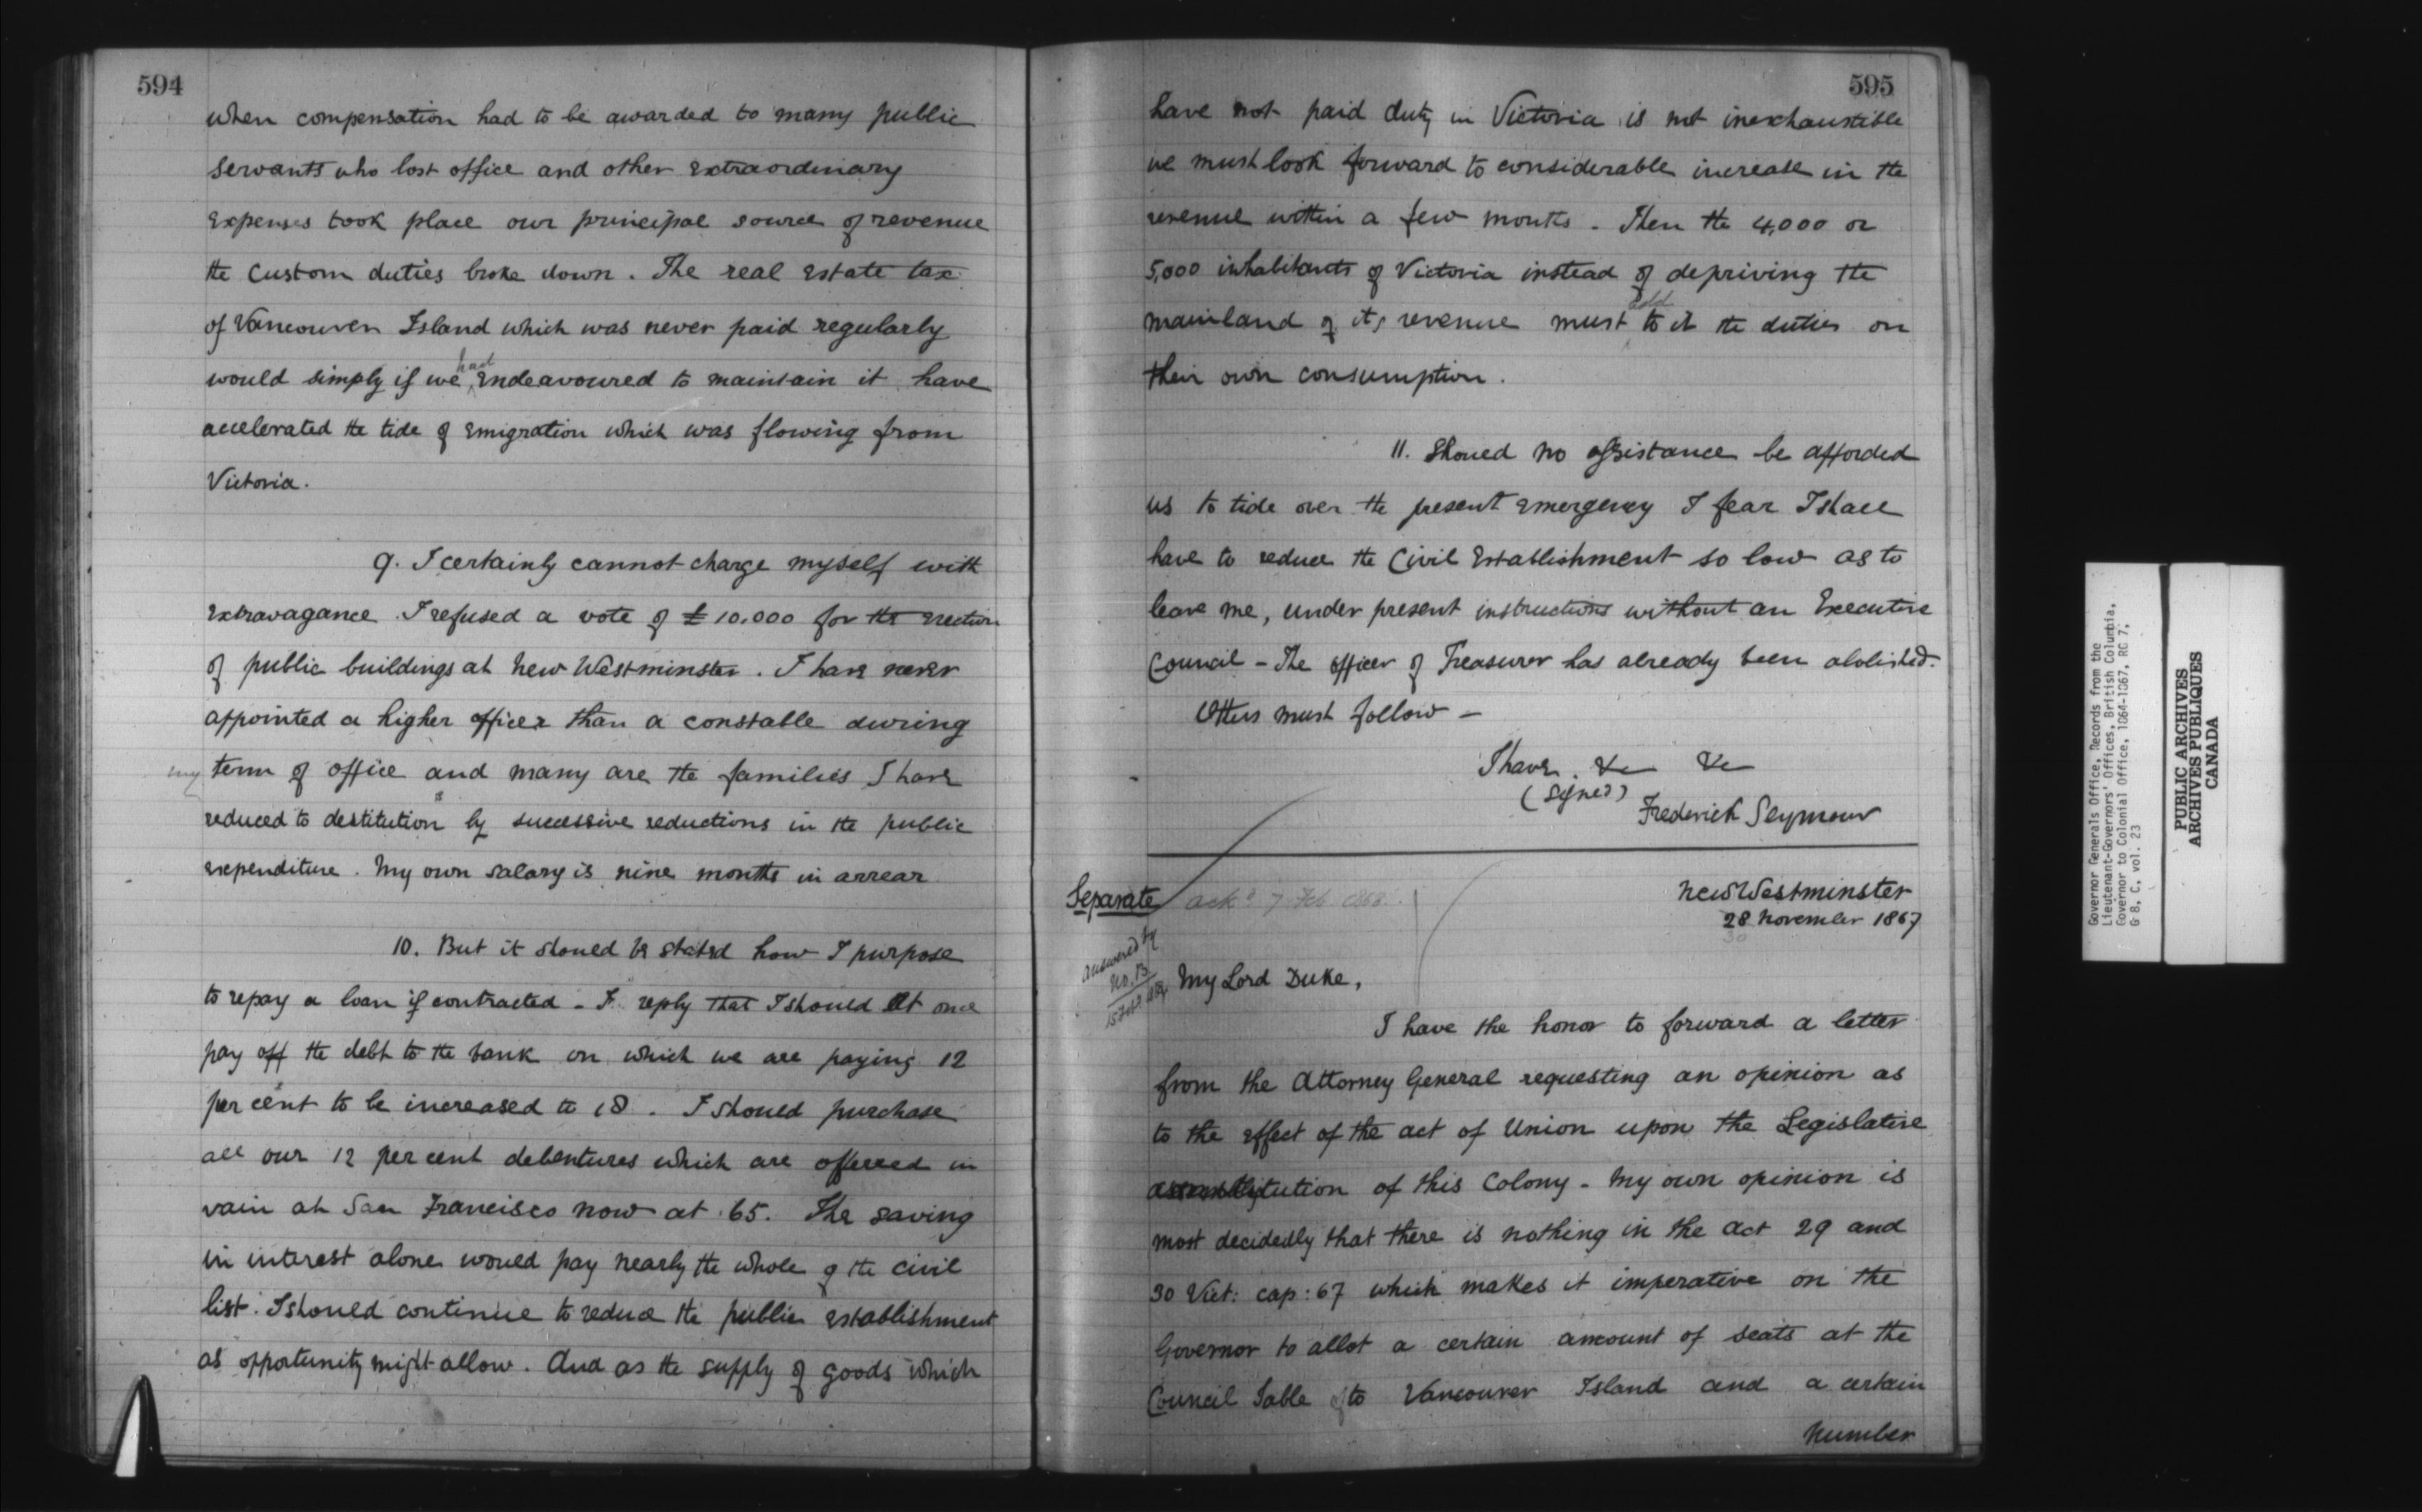 594
when compensation had to be awarded to many public
servants who lost office and other extraordinary
expenses took place our principal source of revenue
the Custom duties broke down. The real estate tax
of Vancouver Island which was never paid regularly
would simply if we had endeavoured to maintain it have
accelerated the tide of emigration which was flowing from
Victoria.
9. I certainly cannot charge myself with
extravagance. I refused a vote of £10.000 for the erection
of public buildings at New Westminster. I have never
appointed a higher officer than a constable during
my term of office and many are the families I have
reduced to destitution by successive reductions in the public
expenditure. My own salary is nine months in arrear
10. But it should be stated how I purpose
to repay a loan if contracted - I reply that I should at once
pay off the debt to the bank on which we are paying 12
per cent to be increased to 18. I should purchase
all our 12 per cent debentures which are offered in
vain at San Francisco now at 65. The saving
in interest alone would pay nearly the whole of the civil
list. I should continue to reduce the public establishment
as opportunity might allow. And as the supply of goods which
595
have not paid duty in Victoria is not inexhaustible
we must look forward to considerable increase in the
revenue within a few months. Then the 4,000 or
5,000 inhabitants of Victoria instead of depriving the
mainland of its revenue must add to it the duties on
their own consumption.
11. Should no assistance be afforded
us to tide over the present emergency I fear I shall
have to reduce the Civil Establishment so low as to
leave me, under present instructions without an Executive
Council - The officer of Treasurer has already been abolished.
Others must follow -
I have &c &c
(signed)
Frederick Seymour
Separate
ackd 7 Feb. 1868.
New Westminster
28 November 1867
30
answered by
No. 13
15 Feby
My Lord Duke,
I have the honor to forward a letter
from the Attorney General requesting an opinion as
to the effect of the act of Union upon the Legislative
tution of this Colony - My own opinion is
most decidedly that there is nothing in the act 29 and
30 Vict: cap: 67 which makes it imperative on the
Governor to allot a certain amount of seats at the
Council Table to Vancouver Island and a certain
number
Governor Generals Office, Records from the
Lieutenant-Governors' Offices, British Columbia,
Governor to Colonial Office, 1864-1867, RG 7,
G 8, C, vol. 23
PUBLIC ARCHIVES
ARCHIVES PUBLIQUES
CANADA